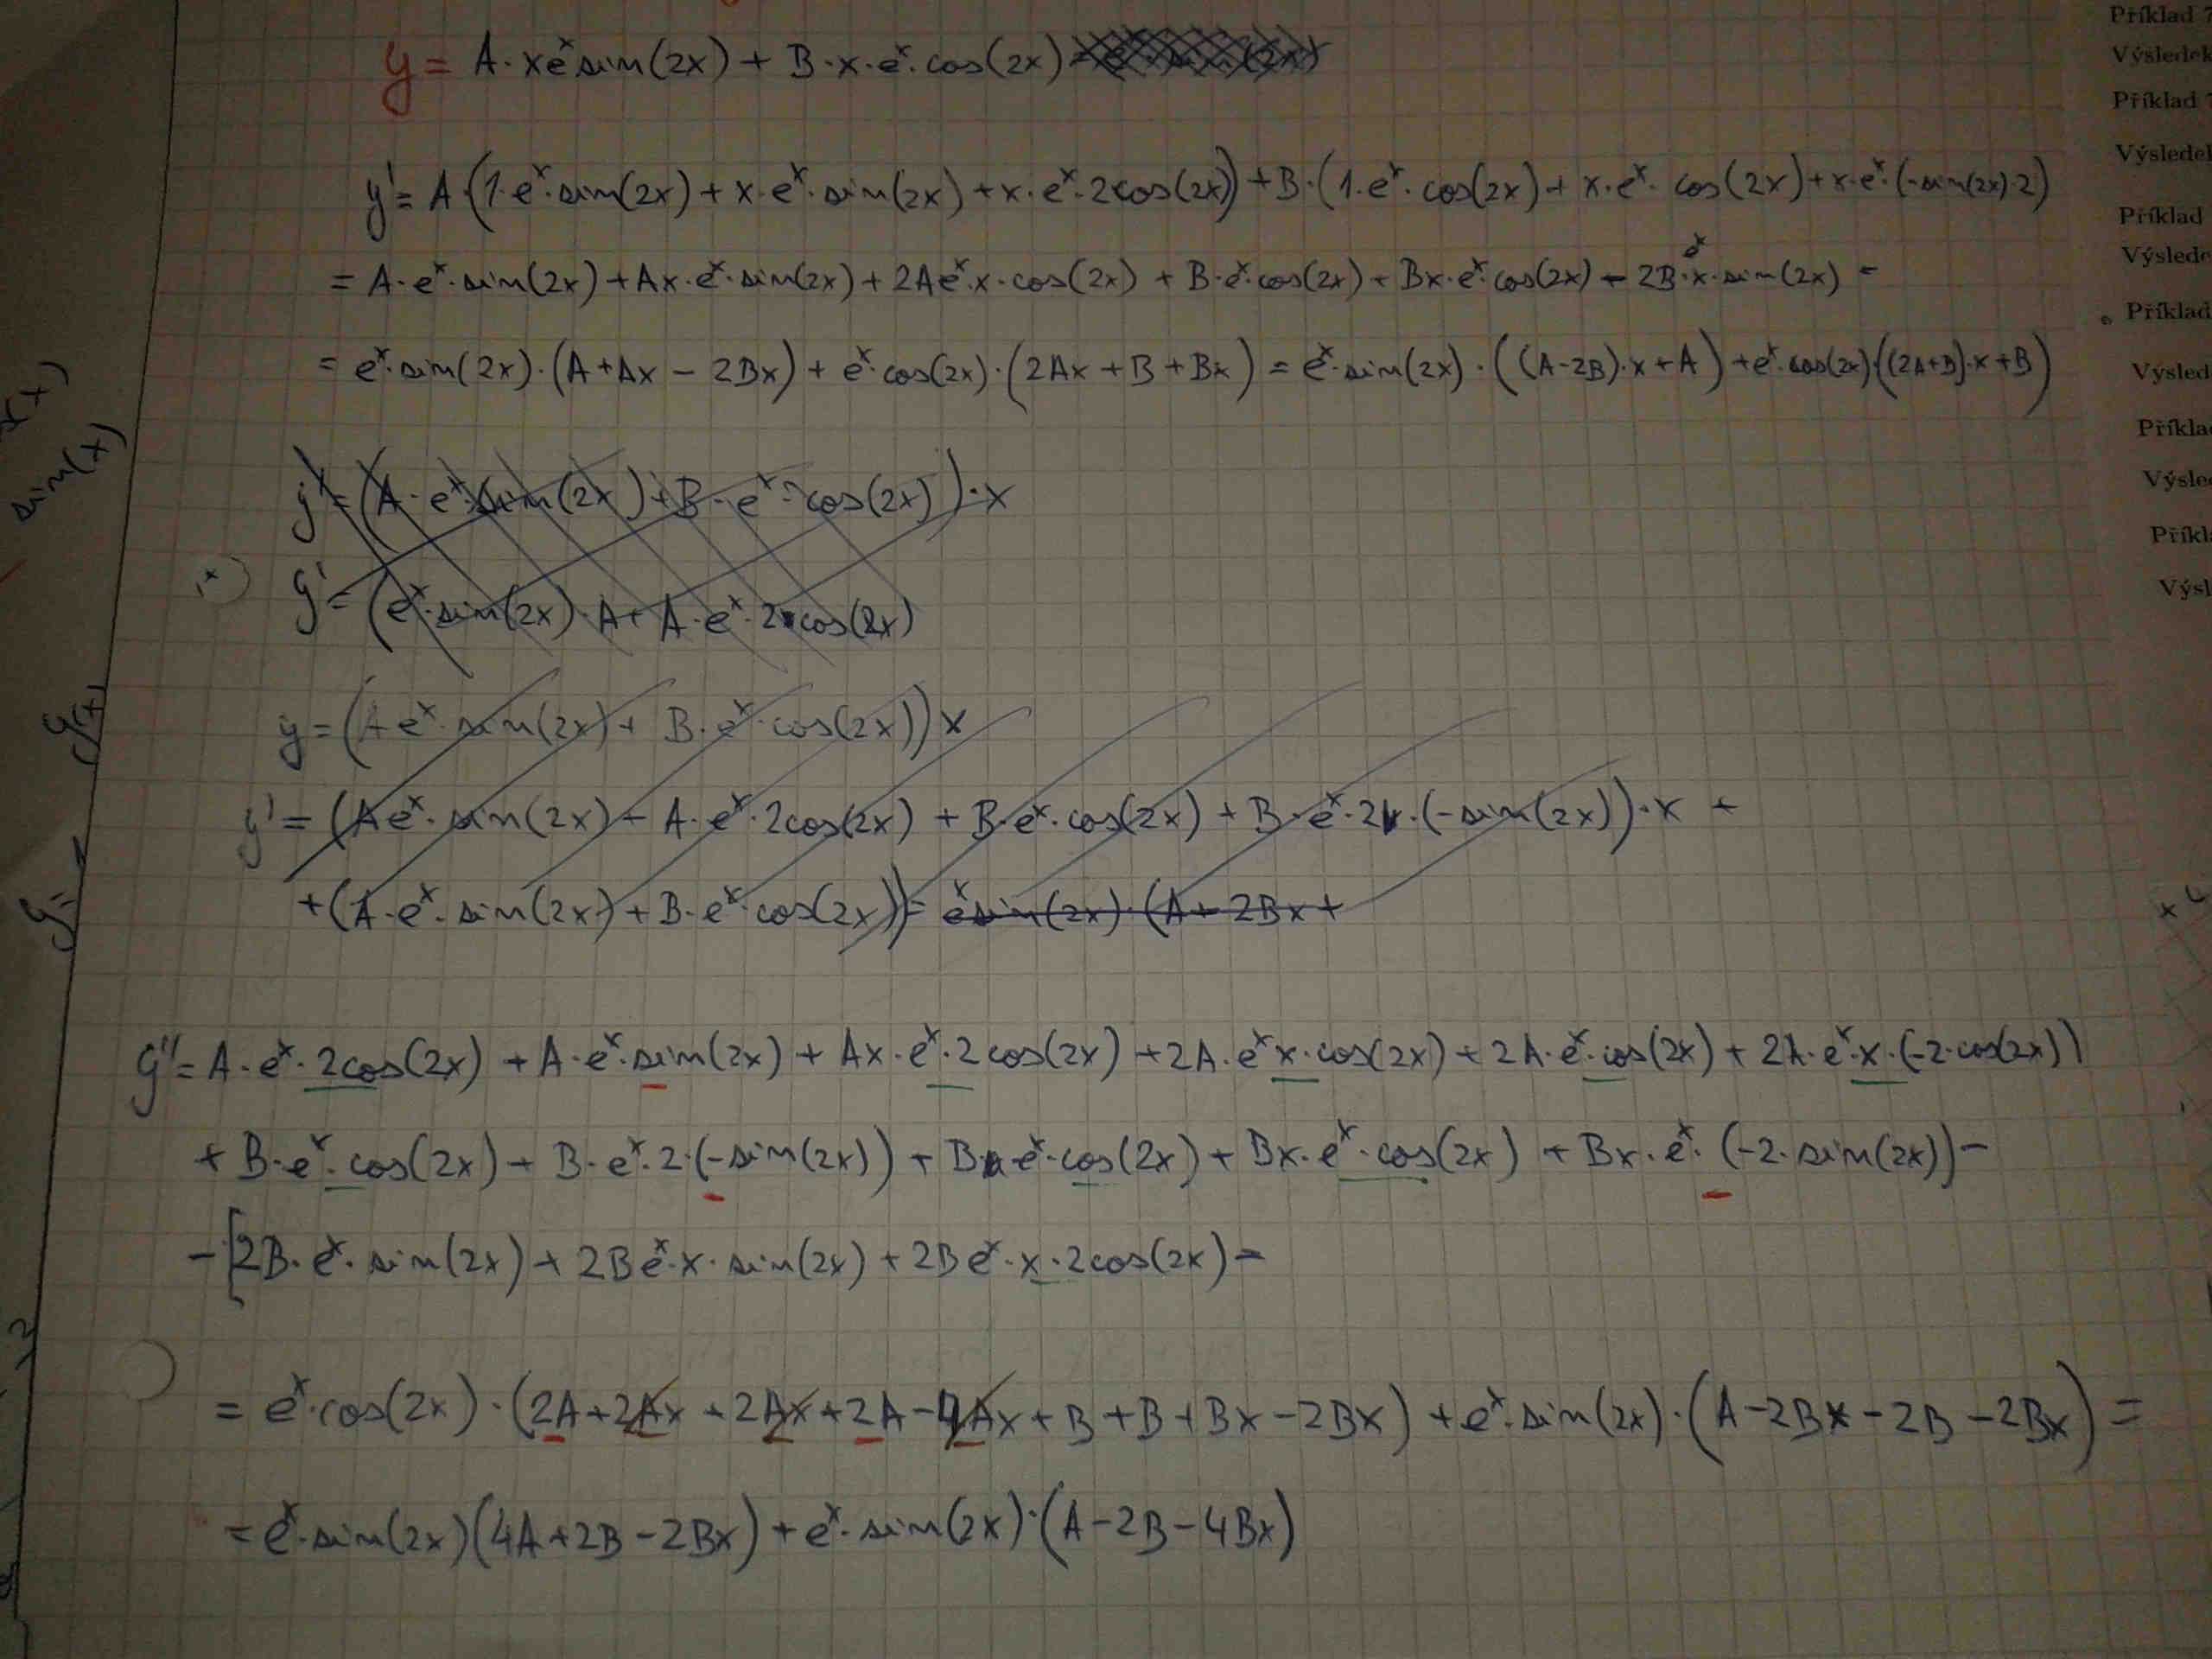 y = A·xeˣsin(2x) + B·x·eˣ·cos(2x)
y' = A·(1·eˣ·sin(2x) + x·eˣ·sin(2x) + x·eˣ·2cos(2x)) + B·(1·eˣ·cos(2x) + x·eˣ·cos(2x) + x·eˣ·(-sin(2x)·2)
= A·eˣ·sin(2x) + Ax·eˣ·sin(2x) + 2Aeˣ·x·cos(2x) + B·eˣ·cos(2x) + Bx·eˣ·cos(2x) - 2B·eˣ·x·sin(2x) =
= eˣ·sin(2x)·(A+Ax - 2Bx) + eˣ·cos(2x)·(2Ax + B + Bx) = eˣ·sin(2x)·((A-2B)·x + A) + eˣ·cos(2x)·((2A+B)·x + B)
y' = (A·eˣ·sin(2x) + B·eˣ·cos(2x))·x
y' = (eˣ·sin(2x)·A + A·eˣ·2·cos(2x)
y = (Aeˣ·sin(2x) + B·eˣ·cos(2x))x
y' = (Aeˣ·sin(2x) + A·eˣ·2cos(2x) + B·eˣ·cos(2x) + B·eˣ·2·(-sin(2x))·x +
+(A·eˣ·sin(2x) + B·eˣ·cos(2x)) = eˣsin(2x)·(A + 2Bx +
y'' = A·eˣ·2cos(2x) + A·eˣ·sin(2x) + Ax·eˣ·2cos(2x) + 2A·eˣx·cos(2x) + 2A·eˣ·cos(2x) + 2A·eˣ·x·(-2·cos(2x))
+ B·eˣ·cos(2x) + B·eˣ·2·(-sin(2x)) + B·eˣ·cos(2x) + Bx·eˣ·cos(2x) + Bx·eˣ·(-2·sin(2x)) -
- [2B·eˣ·sin(2x) + 2Beˣ·x·sin(2x) + 2Beˣ·x·2cos(2x) =
= eˣ·cos(2x)·(2A + 2Ax + 2Ax + 2A - 4Ax + B + B + Bx - 2Bx) + eˣ·sin(2x)·(A - 2Bx - 2B - 2Bx) =
= eˣ·sin(2x)(4A + 2B - 2Bx) + eˣ·sin(2x)·(A - 2B - 4Bx)
sin(x)
Příklad 7
Výsledek
Příklad 7
Výsledek
Příklad
Výslede
Příklad
Výsled
Příkla
Výsle
Příkl
Výsl